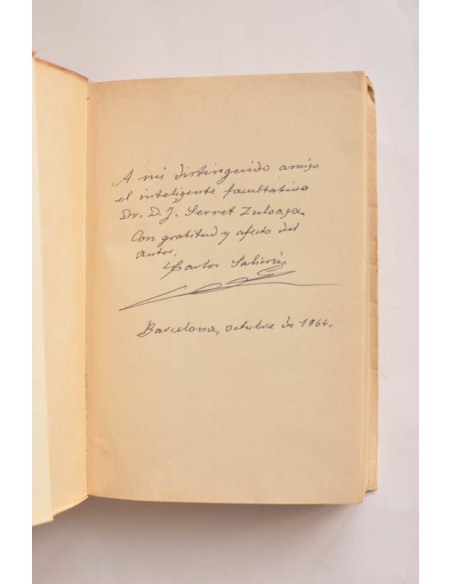 A mi distinguido amigo
el inteligente facultativo
Dr. D. J. Serret Zuloaga.
Con gratitud y afecto del
autor.
Carlos
Barcelona, octubre de 1964.